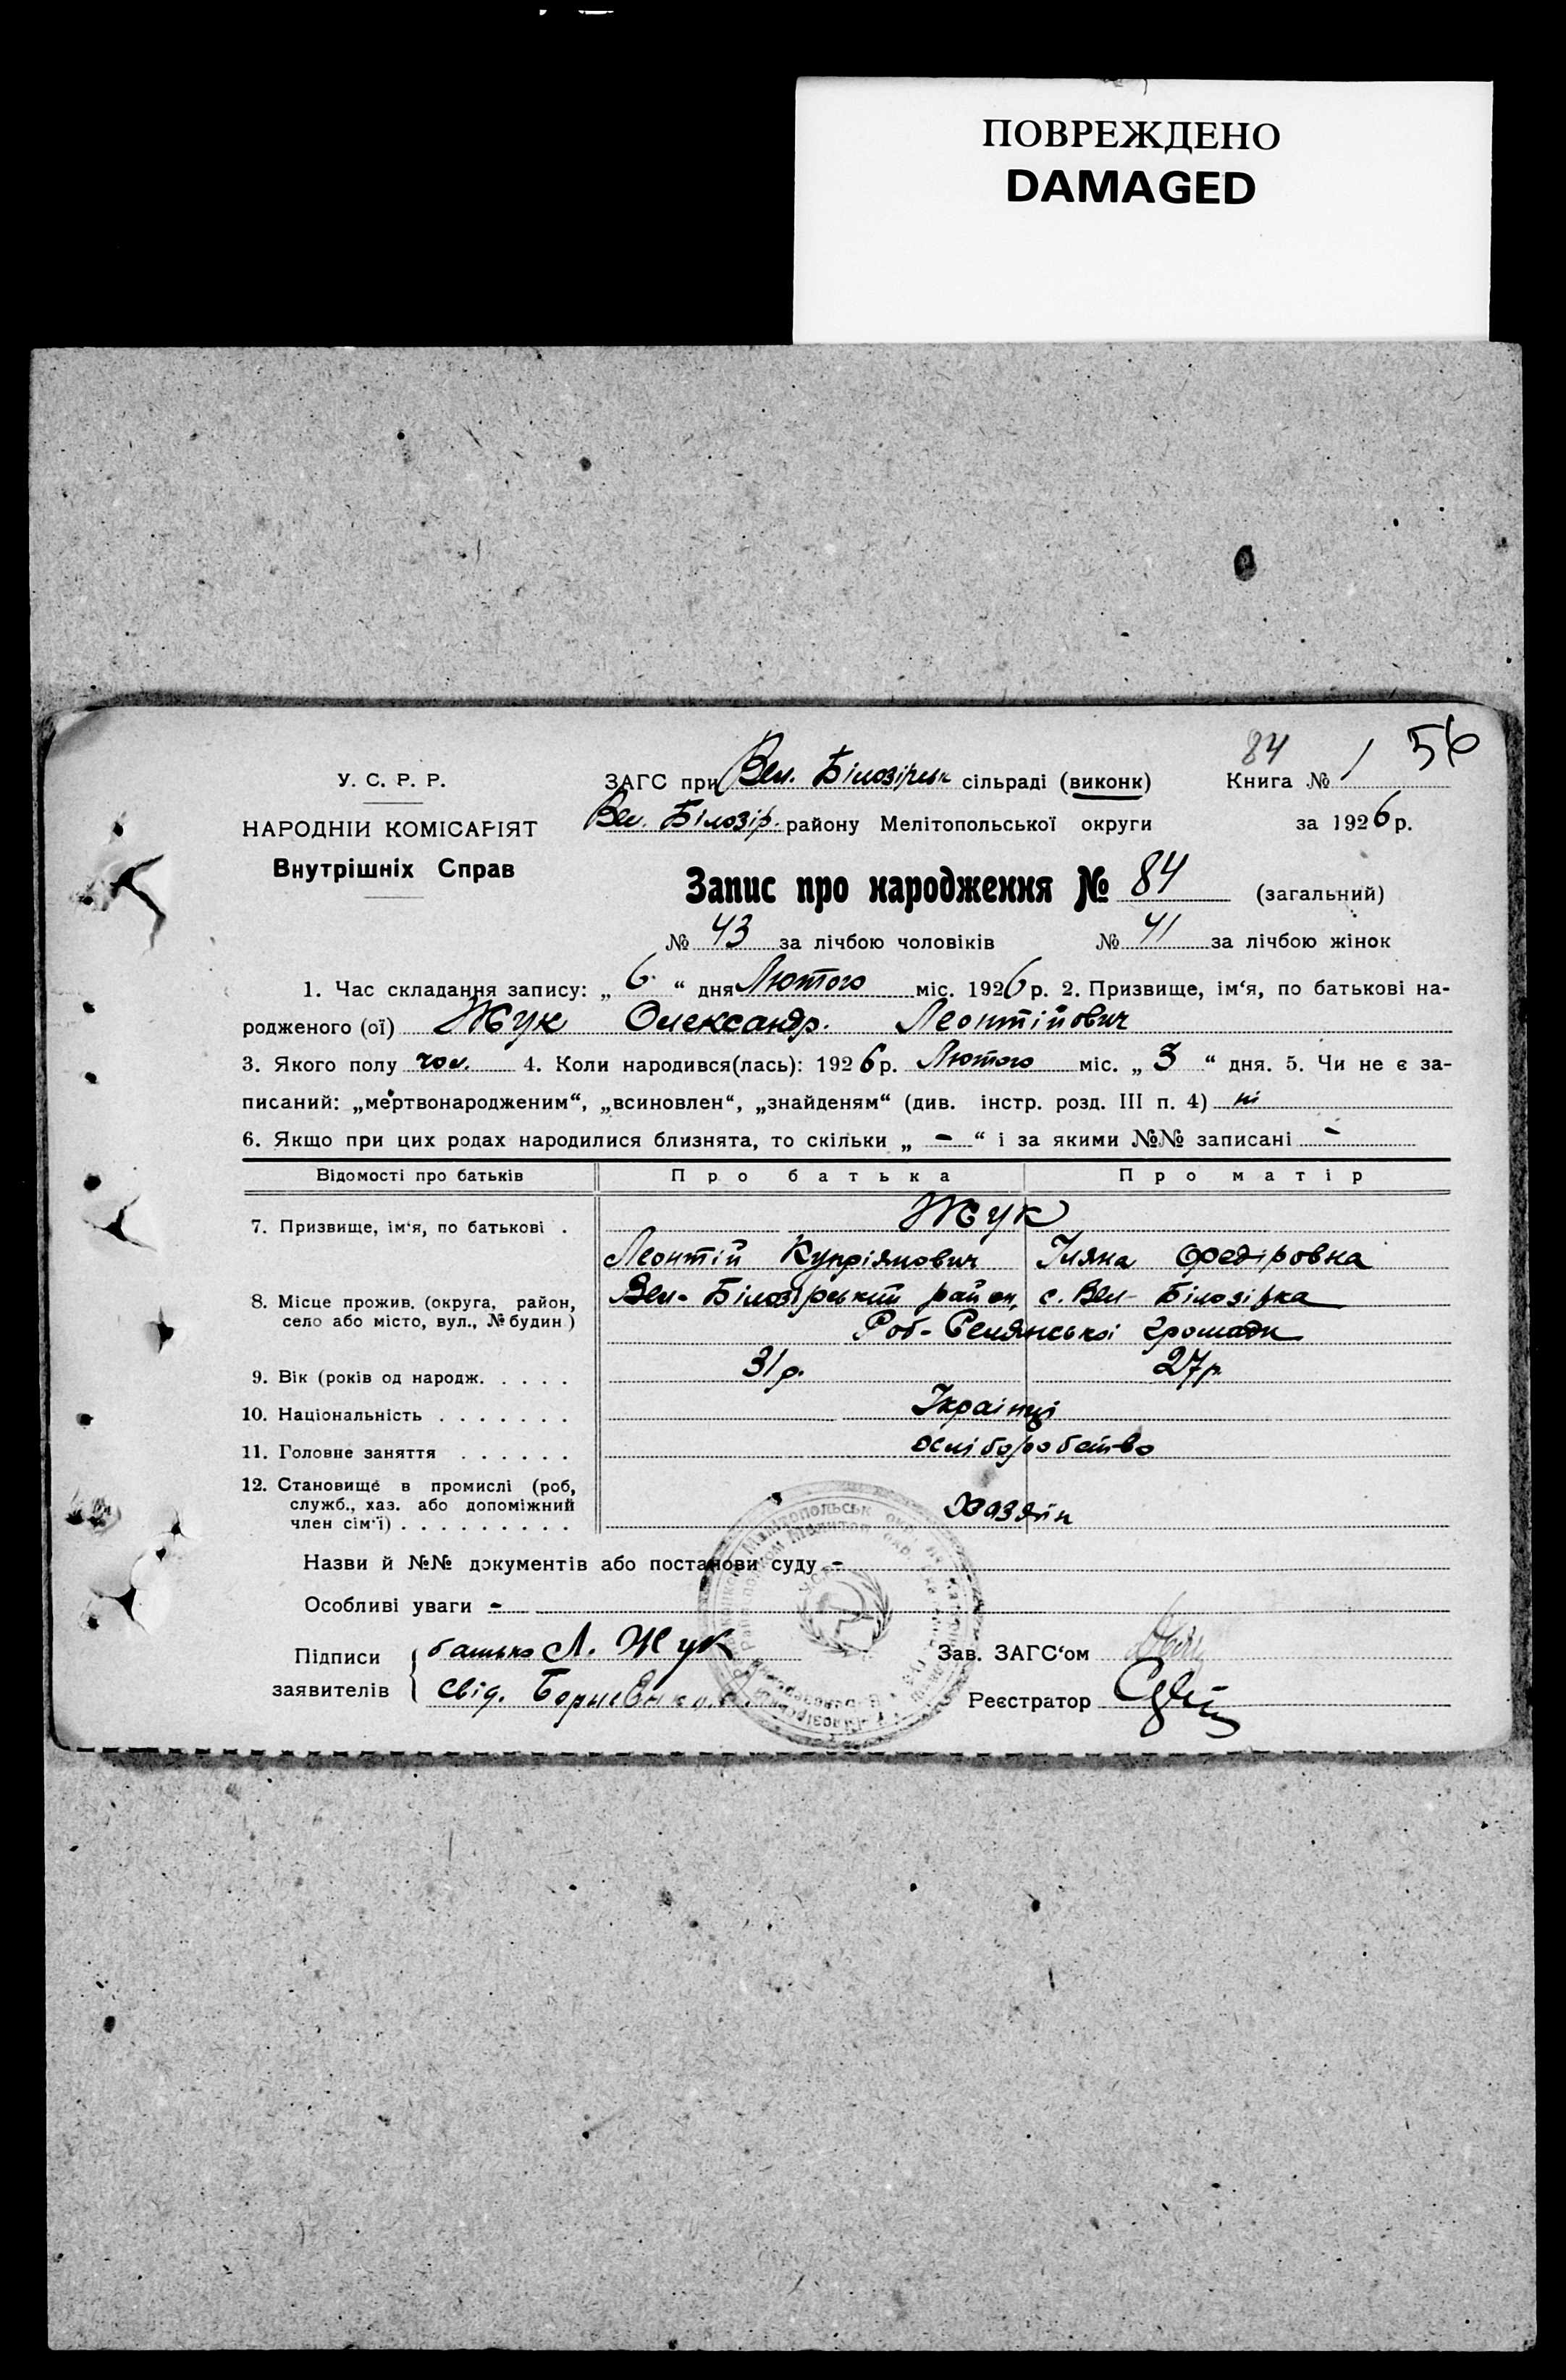 ПОВРЕЖДЕНО
DAMAGED
84 56
У. С. Р. Р. ЗАГС при Вел. Білозірськ сільраді (виконк) Книга № 1
НАРОДНІЙ КОМІСАРІЯТ Вел. Білозір. району Мелітопольської округи за 1926 р.
Внутрішніх Справ
Запис про народження № 84 (загальний)
№ 43 за лічбою чоловіків № 41 за лічбою жінок
1. Час складання запису: „ 6 “ дня Лютого міс. 1926 р. 2. Призвище, ім‘я, по батькові на-
родженого (ої) Жук Олександр. Леонтійович
3. Якого полу чол. 4. Коли народився(лась): 1926 р. Лютого міс. „ 3 “ дня. 5. Чи не є за-
писаний: „мертвонародженим“, „всиновлен“, „знайденям“ (див. інстр. розд. III п. 4) ні
6. Якщо при цих родах народилися близнята, то скільки „ - “ і за якими №№ записані -
Відомості про батьків Про батька Про матір
7. Призвище, ім‘я, по батькові . Жук
Леонтій Купріянович Уляна Федіровна
8. Місце прожив. (округа, район, Вел- Білозірський район, с. Вел- Білозірка
село або місто, вул., № будин) Роб- Селянської громади
9. Вік (років од народж. . . . . 31 р. 27 р.
10. Національність . . . . . . . Українці
11. Головне заняття . . . . . . хліборобство
12. Становище в промислі (роб,
служб., хаз. або допоміжний хазяїн
член сім‘ї) . . . . . . . . .
Назви й №№ документів або постанови суду -
Особливі уваги -
Підписи батько Л. Жук Зав. ЗАГС‘ом
заявителів свід. Реєстратор